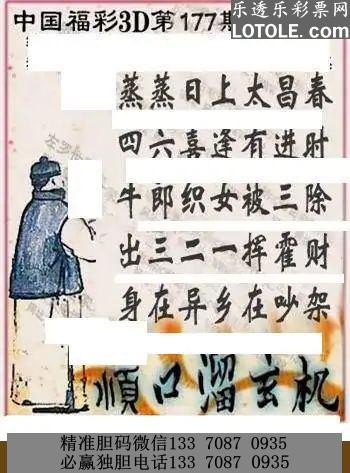 乐透乐彩票网
LOTOLE.COM
中国福彩3D第177期
蒸蒸日上太昌春
四六喜逢有进时
牛郎织女被三除
出三二一挥霍财
身在异乡在吵架
顺口溜玄机
精准胆码微信133 7087 0935
必赢独胆电话133 7087 0935